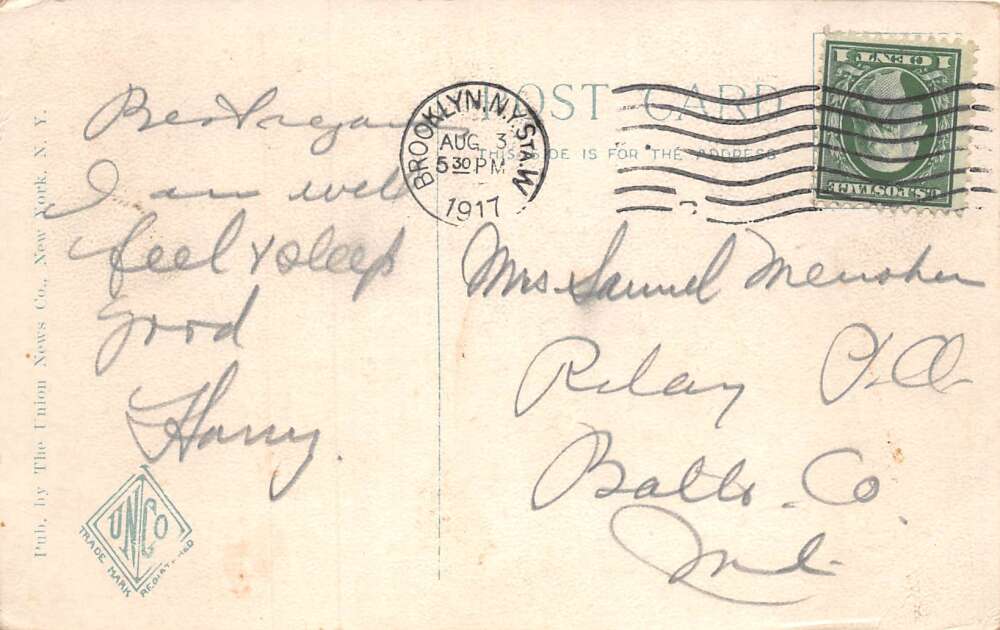 POST CARD
THIS SIDE IS FOR THE ADDRESS
BROOKLYN, N.Y. STA. W
AUG 3
5 30 PM
1917
1 ONE 1
U.S. POSTAGE
I am well
feel & sleep
good
Harry.
Mrs Samuel
Relay P.O.
Balto. Co.
Md.
Pub. by The Union News Co., New York, N. Y.
UNCo
TRADE MARK REGISTERED